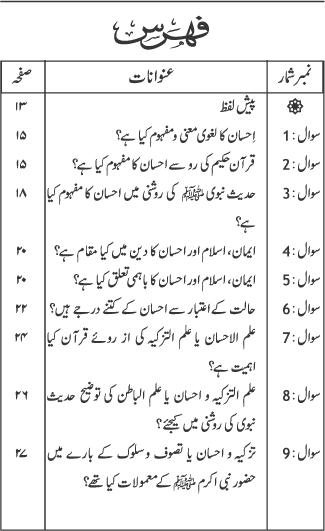 فہرس
نمبر شمار عنوانات صفحہ
پیش لفظ ۱۳
سوال : 1 اِحسان کا لغوی معنی و مفہوم کیا ہے؟ ۱۵
سوال : 2 قرآن حکیم کی رو سے احسان کا مفہوم کیا ہے؟ ۱۵
سوال : 3 حدیث نبوی ﷺ کی روشنی میں احسان کا مفہوم کیا ۱۸
ہے؟
سوال : 4 ایمان، اسلام اور احسان کا دین میں کیا مقام ہے؟ ۲۰
سوال : 5 ایمان، اسلام اور احسان کا باہمی تعلق کیا ہے؟ ۲۰
سوال : 6 حالت کے اعتبار سے احسان کے کتنے درجے ہیں؟ ۲۲
سوال : 7 علم الاحسان یا علم التزکیہ کی از روئے قرآن کیا ۲۴
اہمیت ہے؟
سوال : 8 علم التزکیہ و احسان یا علم الباطن کی توضیح حدیث ۲۶
نبوی کی روشنی میں کیجئے؟
سوال : 9 تزکیہ و احسان یا تصوف و سلوک کے بارے میں ۲۷
حضور نبی اکرم ﷺ کے معمولات کیا تھے؟